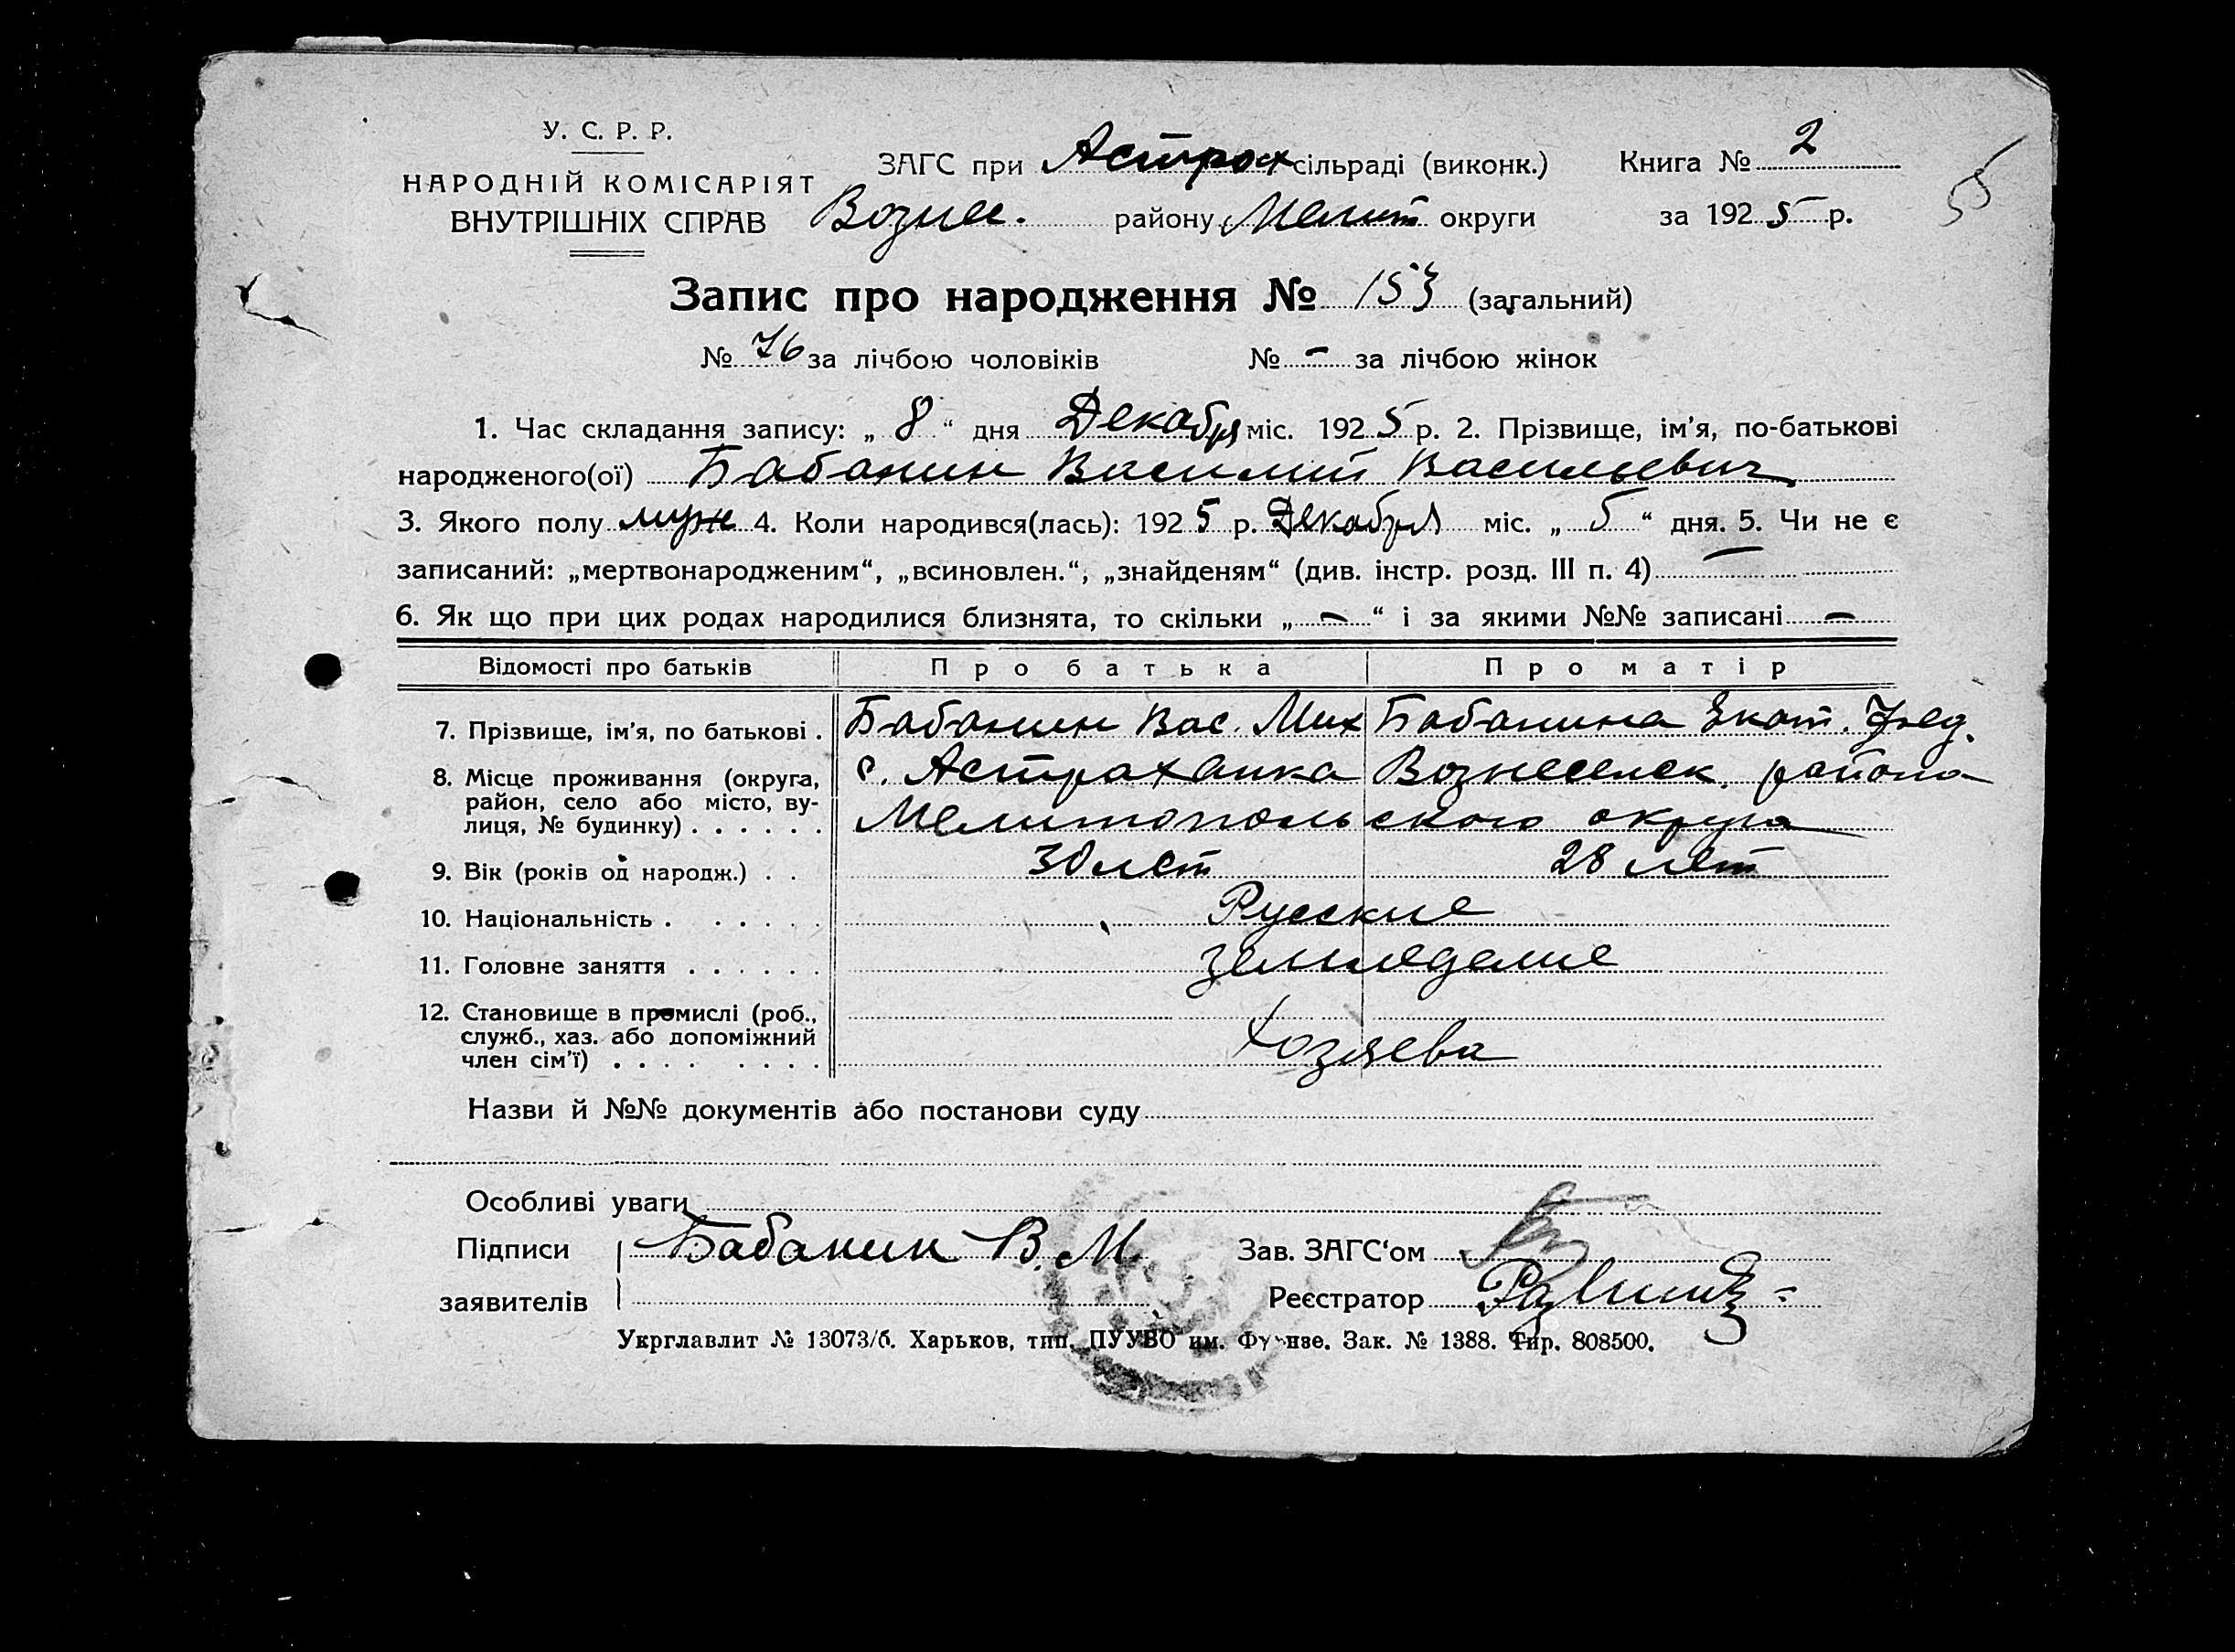 У. С. Р. Р.
НАРОДНІЙ КОМІСАРІЯТ
ВНУТРІШНІХ СПРАВ
ЗАГС при Астрах сільраді (виконк.) Книга № 2
Вознес. району Мелит округи за 1925 р.
55
Запис про народження № 153 (загальний)
№ 76 за лічбою чоловіків № - за лічбою жінок
1. Час складання запису: „ 8 “ дня Декабря міс. 1925 р. 2. Прізвище, ім'я, по-батькові
народженого(ої) Бабанин Василий Васильевич
3. Якого полу муж 4. Коли народився(лась): 1925 р. Декабря міс. „ 5 “ дня. 5. Чи не є
записаний: „мертвонародженим“, „всиновлен.“, „знайденям“ (див. інстр. розд. III п. 4) —
6. Як що при цих родах народилися близнята, то скільки „ — “ і за якими №№ записані —
Відомості про батьків Про батька Про матір
7. Прізвище, ім'я, по батькові . Бабанин Вас. Мих Бабанина Екат. Фед.
8. Місце проживання (округа, район, село або місто, вулиця, № будинку) . . . . . . с. Астраханка Вознесенск. района
Мелитопольского округа
9. Вік (років од народж.) . . 30 лет 28 лет
10. Національність . . . . . . Русские
11. Головне заняття . . . . . . земледелие
12. Становище в промислі (роб., служб., хаз. або допоміжний член сім'ї) . . . . . . . . Хозяева
Назви й №№ документів або постанови суду
Особливі уваги
Підписи Бабанин В. М. Зав. ЗАГС'ом
заявителів Реєстратор
Укрглавлит № 13073/б. Харьков, тип. ПУУВО им. Фрунзе. Зак. № 1388. Тир. 808500.